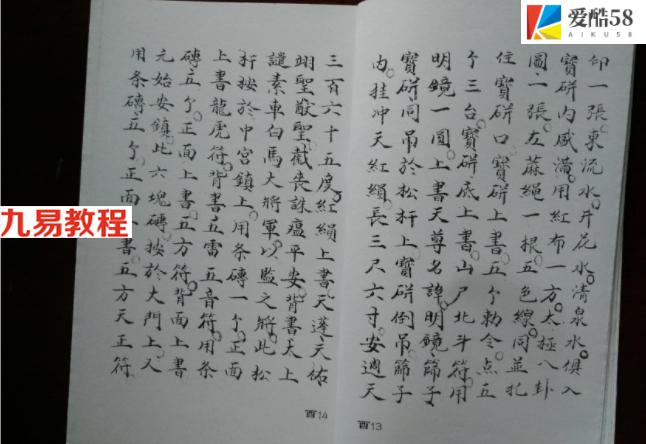 爱酷58
AIKU58
九易教程
一張。東流水。井花水。清泉水。俱入
寶硑内咸滿。用紅布一方。太極八卦
圖一張。左蔴繩一根。五色線。同並扎
住寶硑口。寶硑上書五个勅令。点五
个三台。寶硑底上書山尸北斗符。用
明鏡一圓。上書天尊名諱。明鏡篩子
寶硑同吊於松杆上。寶硑倒吊篩子
内。挂冲天紅絹。長三尺六寸。安週天
酉13
三百六十五度。紅絹上書天蓬天佑
翊聖猷聖。截丧誅瘟平安。背書大上
譴素車白馬大將軍。以監之。將此松
杆按於中宮鎮上。用条磚一个。正面
上書龍虎符。背書五雷五音符。用条
磚五个。正面上書五方符。背面上書
元始安鎮。此六塊磚按於大門上。又
用条磚五个。正面書五方天正符
酉14